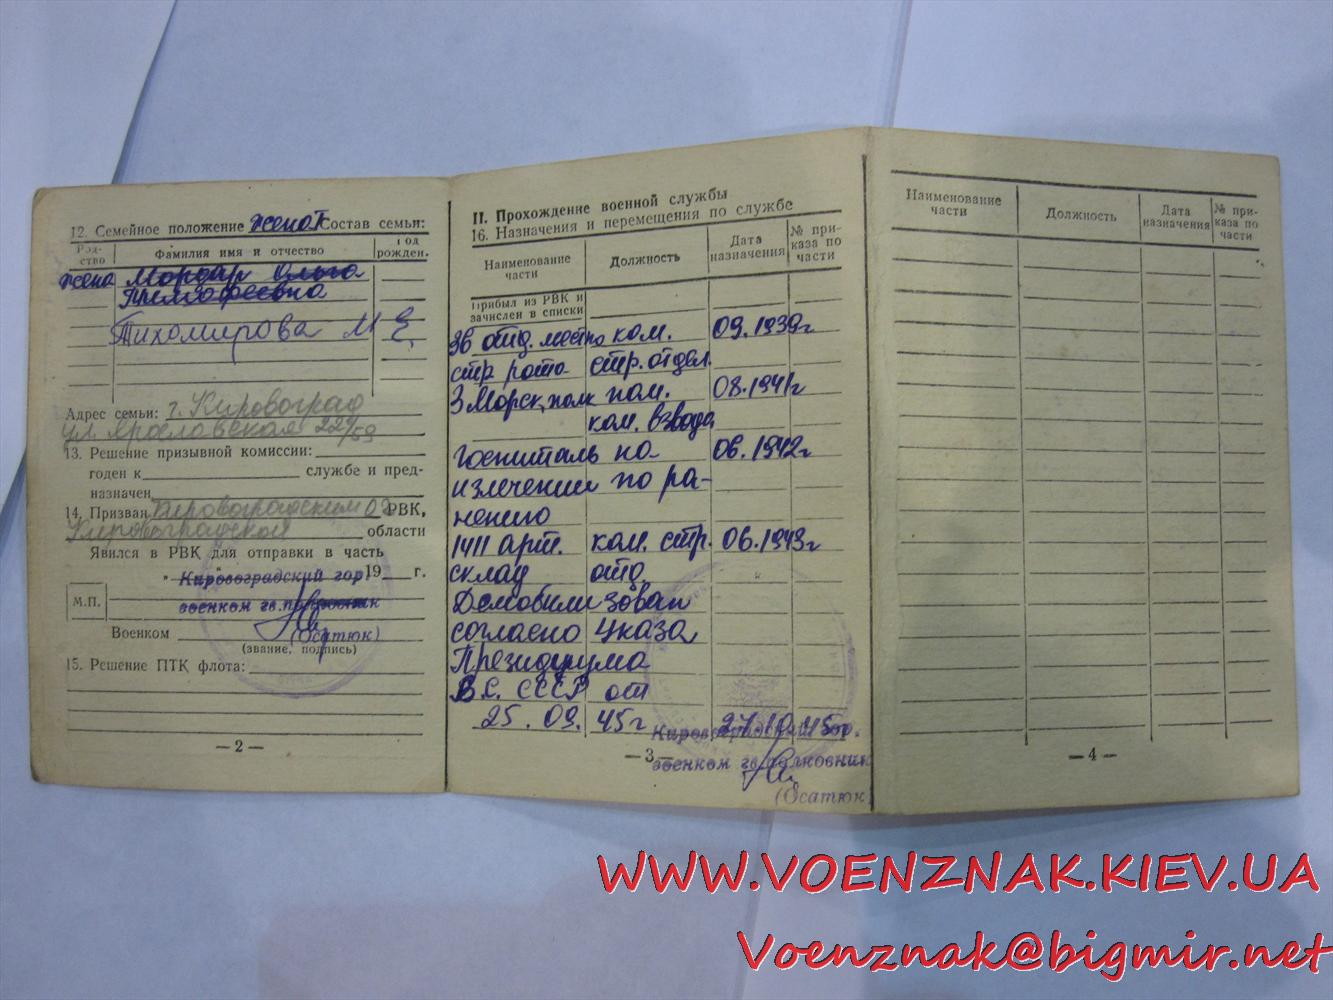 12. Семейное положение женат Состав семьи:
Род-
ство
Фамилия имя и отчество
Год
рожден.
жена Мордар Ольга
Тимофеевна
Тихомирова М Е.
Адрес семьи: г. Кировоград
ул. Ярославская 22
13. Решение призывной комиссии:
годен к службе и пред-
назначен
14. Призван Кировоградским РВК,
Кировоградской области
Явился в РВК для отправки в часть
" Кировоградский гор. 19 г.
М.П.
военком гв. полковник
Военком (Осатюк)
(звание, подпись)
15. Решение ПТК флота:
— 2 —
II. Прохождение военной службы
16. Назначения и перемещения по службе
Наименование
части
Должность
Дата
назначения
№ при-
каза по
части
Прибыл из РВК и
зачислен в списки
36 отд. местн ком. 09.1939г
стр рота стр. отдел.
3 Морск, полк пом. 08.1941г
ком. взвода
Госпиталь на 06.1942г
излечении по ра-
нению
1411 арт. ком. стр. 06.1943г
склад отд
Демобилизован
согласно Указа
Президиума
В.С. СССР от
25.09.45г 27.10.45г.
Кировоградский гор.
— 3 —
военком гв. полковник
(Осатюк)
Наименование
части
Должность
Дата
назначения
№ при-
каза по
части
— 4 —
WWW.VOENZNAK.KIEV.UA
Voenznak@bigmir.net